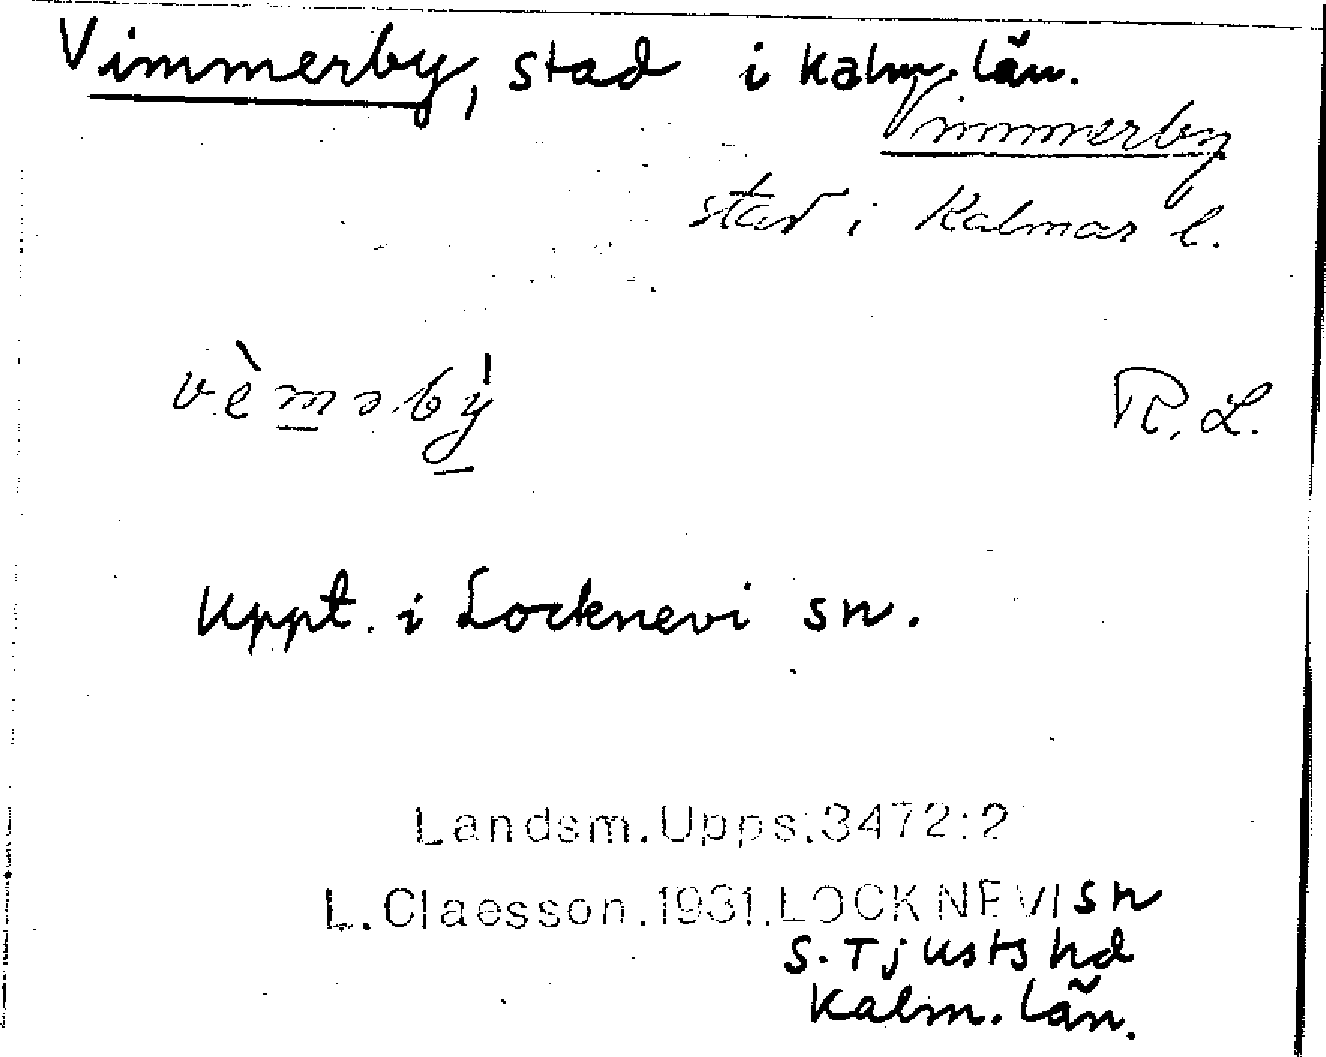 Vimmerby, stad i Kalm. län.
Vimmerby
stad i Kalmar l.
vèməbý
R. L.
Uppt. i Locknevi sn.
Landsm.Upps.3472:2
L.Claesson.1931.LOCKNEVI sn
S. Tjusts hd
Kalm. län.